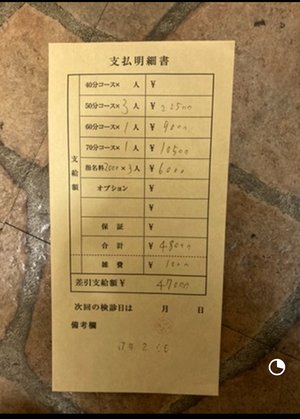 支払明細書
支給額
40分コース× 人 ¥
50分コース× 3人 ¥ 22500
60分コース× 1人 ¥ 9000
70分コース× 1人 ¥ 10500
指名料2000×3人 ¥ 6000
オプション ¥
¥
保証 ¥
合計 ¥ 48000
雑費 ¥ 1000
差引支給額 ¥ 47000
次回の検診日は 月 日
備考欄